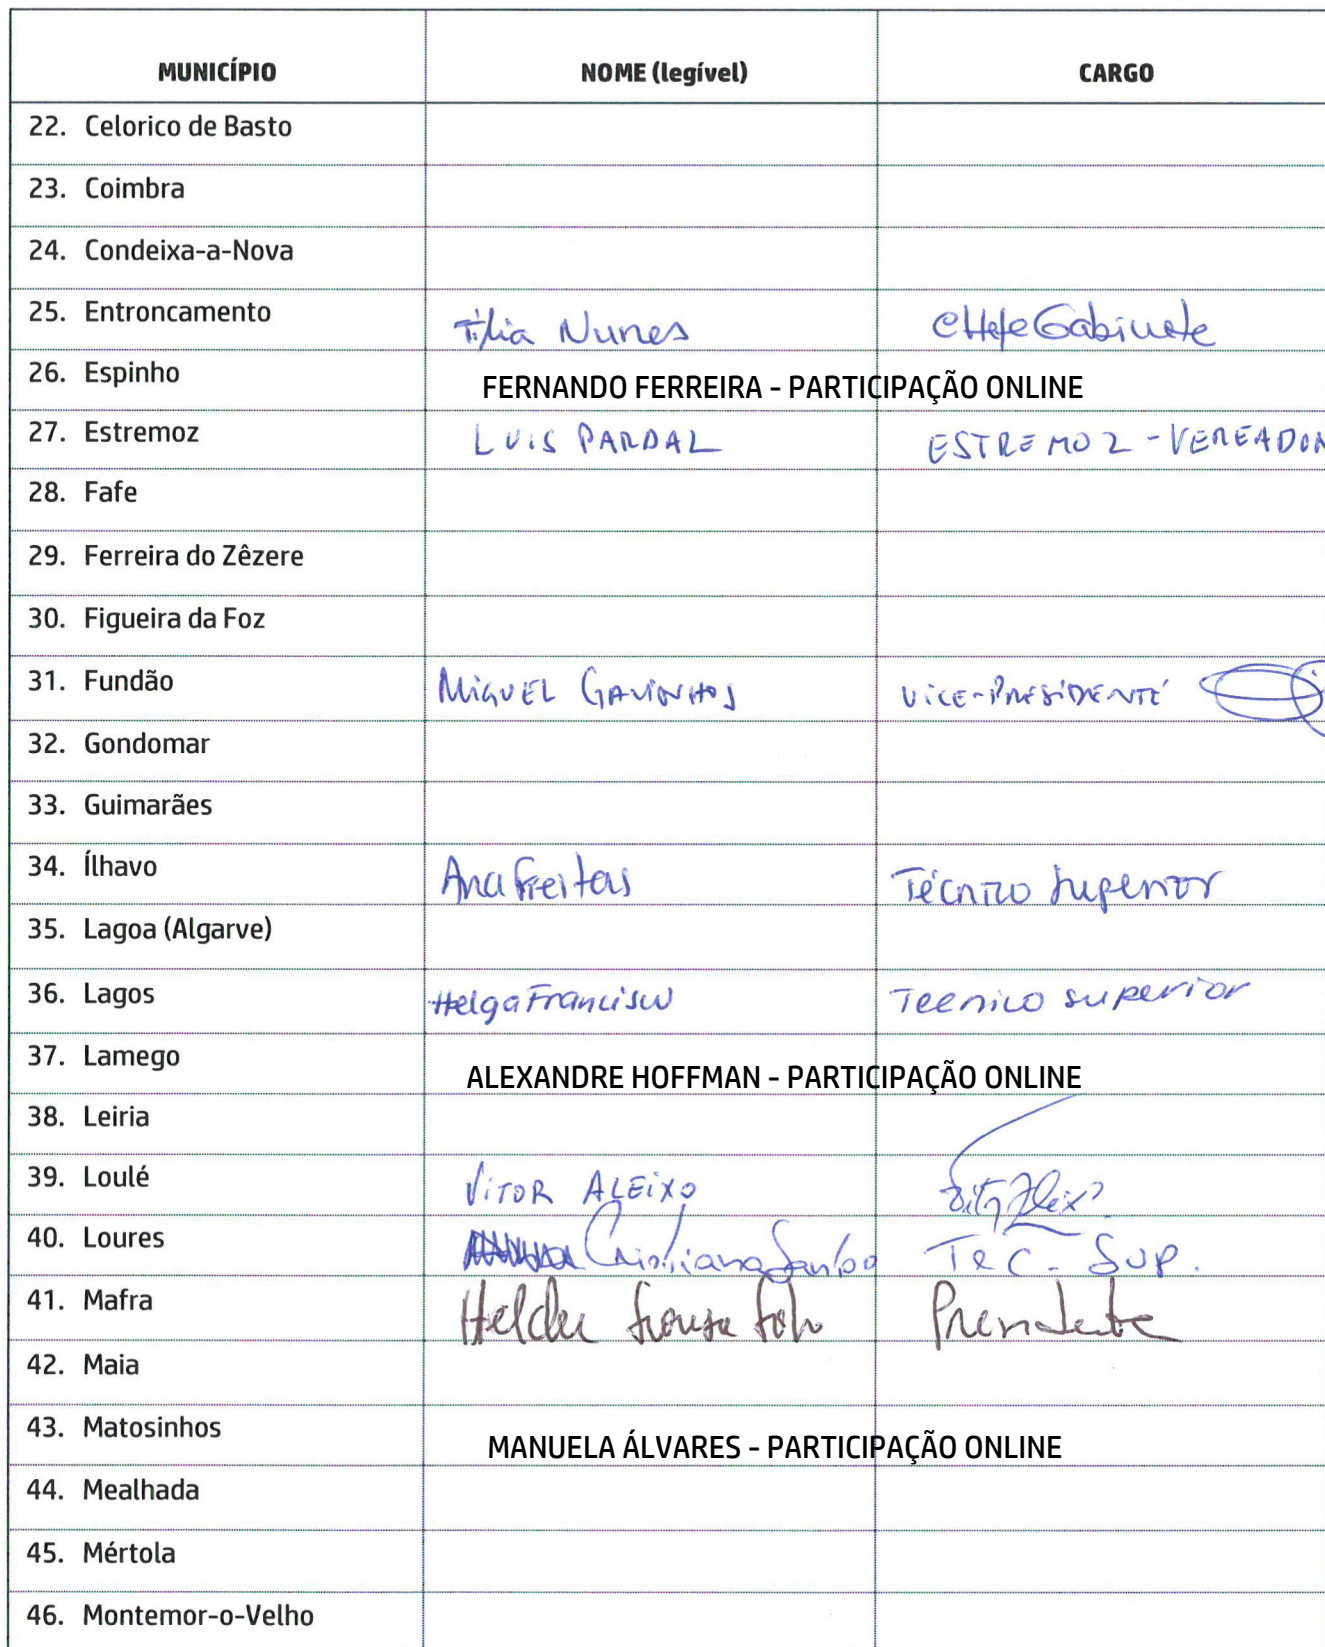 MUNICÍPIO NOME (legível) CARGO
22. Celorico de Basto
23. Coimbra
24. Condeixa-a-Nova
25. Entroncamento Tília Nunes Chefe Gabinete
26. Espinho FERNANDO FERREIRA - PARTICIPAÇÃO ONLINE
27. Estremoz LUIS PARDAL ESTREMOZ - VEREADOR
28. Fafe
29. Ferreira do Zêzere
30. Figueira da Foz
31. Fundão MIGUEL GAVINHOS VICE-PRESIDENTE
32. Gondomar
33. Guimarães
34. Ílhavo Ana Freitas Técnico Superior
35. Lagoa (Algarve)
36. Lagos Helga Francisco Tecnico superior
37. Lamego ALEXANDRE HOFFMAN - PARTICIPAÇÃO ONLINE
38. Leiria
39. Loulé VITOR ALEIXO
40. Loures Cristiana Tec. Sup.
41. Mafra Helder Sousa Presidente
42. Maia
43. Matosinhos MANUELA ÁLVARES - PARTICIPAÇÃO ONLINE
44. Mealhada
45. Mértola
46. Montemor-o-Velho